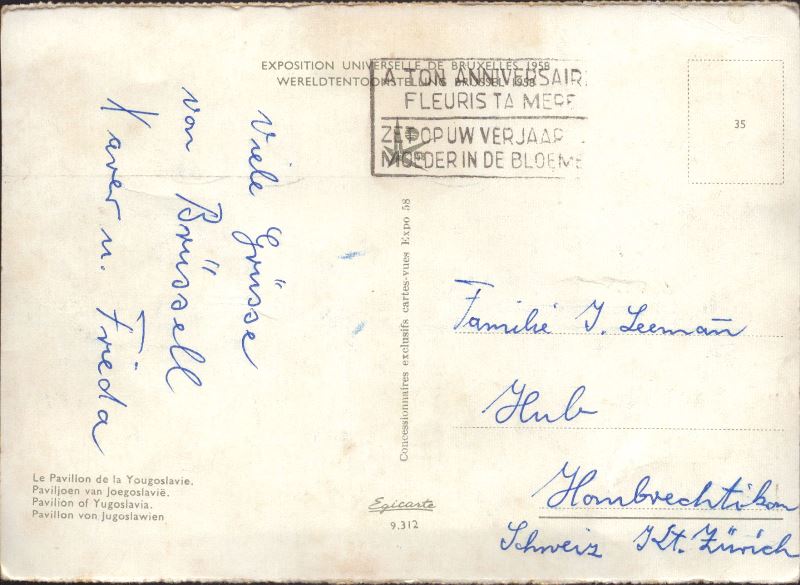 EXPOSITION UNIVERSELLE DE BRUXELLES 1958
WERELDTENTOONSTELLING BRUSSEL 1958
A TON ANNIVERSAIR
FLEURIS TA MERE
ZET OP UW VERJAAR
MOEDER IN DE BLOEME
35
Viele Grüsse
von Brüssell
Xaver u. Frieda
Concessionnaires exclusifs cartes-vues Expo 58
Familie J. Leemann
Hub
Hombrechtikon
Schweiz Kt. Zürich
Le Pavillon de la Yougoslavie.
Paviljoen van Joegoslavië.
Pavilion of Yugoslavia.
Pavillon von Jugoslawien
Egicarte
9.312